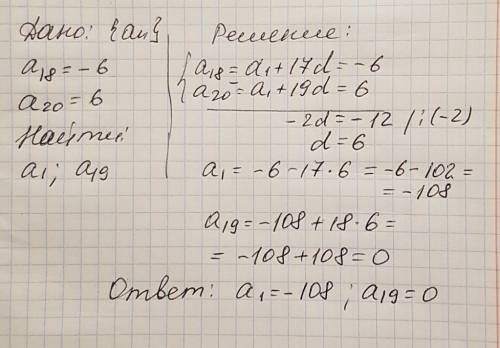 Дано: {an}
a18 = -6
a20 = 6
Найти:
a1; a19
Решение:
{a18 = a1 + 17d = -6
{a20 = a1 + 19d = 6
-2d = -12 /:(-2)
d = 6
a1 = -6 - 17·6 = -6 - 102 =
= -108
a19 = -108 + 18·6 =
= -108 + 108 = 0
Ответ: a1 = -108; a19 = 0